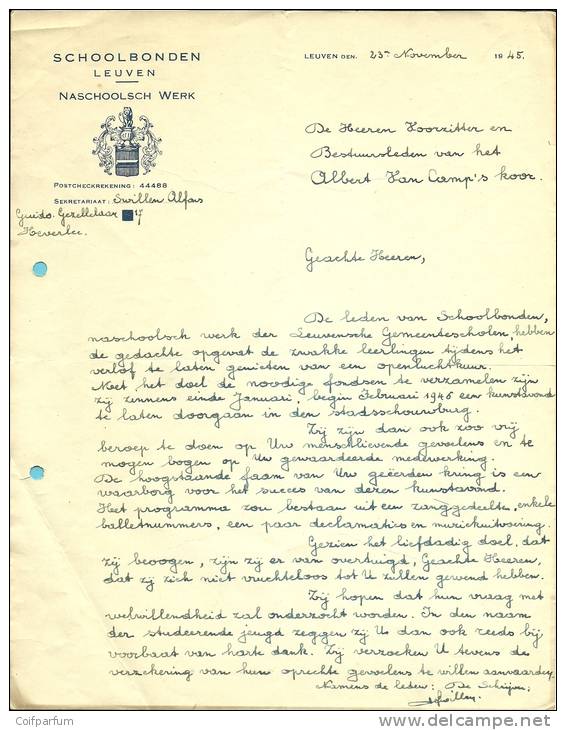 SCHOOLBONDEN
LEUVEN
NASCHOOLSCH WERK
POSTCHECKREKENING: 44488
SEKRETARIAAT: Swillen Alfons
Guido Gezellelaan 17
Heverlee.
LEUVEN DEN, 23en November 1945.
De Heeren Voorzitter en
Bestuursleden van het
Albert Van Camp's koor.
Geachte Heeren,
De leden van Schoolbonden,
naschoolsch werk der Leuvensche Gemeentescholen, hebben
de gedachte opgevat de zwakke leerlingen tijdens het
verlof te laten genieten van een openluchtkuur.
Met het doel de noodige fondsen te verzamelen zijn
zij zinnens einde Januari, begin Februari 1946 een kunstavond
te laten doorgaan in den stadsschouwburg.
Zij zijn dan ook zoo vrij
beroep te doen op Uw menschlievende gevoelens en te
mogen bogen op Uw gewaardeerde medewerking.
De hoogstaande faam van Uw geëerden kring is een
waarborg voor het succes van deren kunstavond.
Het programma zou bestaan uit een zanggedeelte, enkele
balletnummers, een paar declamaties en muziekuitvoering.
Gezien het liefdadig doel, dat
zij beoogen, zijn zij er van overtuigd, Geachte Heeren,
dat zij zich niet vruchteloos tot U zullen gewend hebben.
Zij hopen dat hun vraag met
welwillendheid zal onderzocht worden. In den naam
der studeerende jeugd zeggen zij U dan ook reeds bij
voorbaat van harte dank. Zij verzoeken U tevens de
verzekering van hun oprechte gevoelens te willen aanvaarden.
Namens de leden: De Schrijver:
ASwillen
Coifparfum
www.delcampe.net